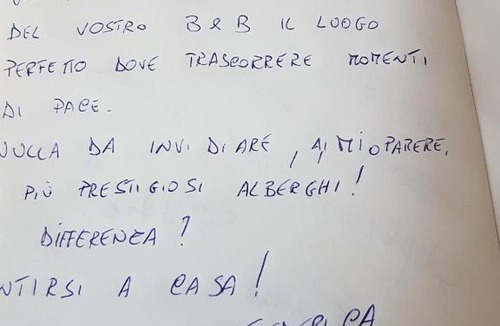 DEL VOSTRO B & B IL LUOGO
PERFETTO DOVE TRASCORRERE MOMENTI
DI PACE.
NULLA DA INVIDIARE, A MIO PARERE,
PIÙ PRESTIGIOSI ALBERGHI!
DIFFERENZA?
NTIRSI A CASA!